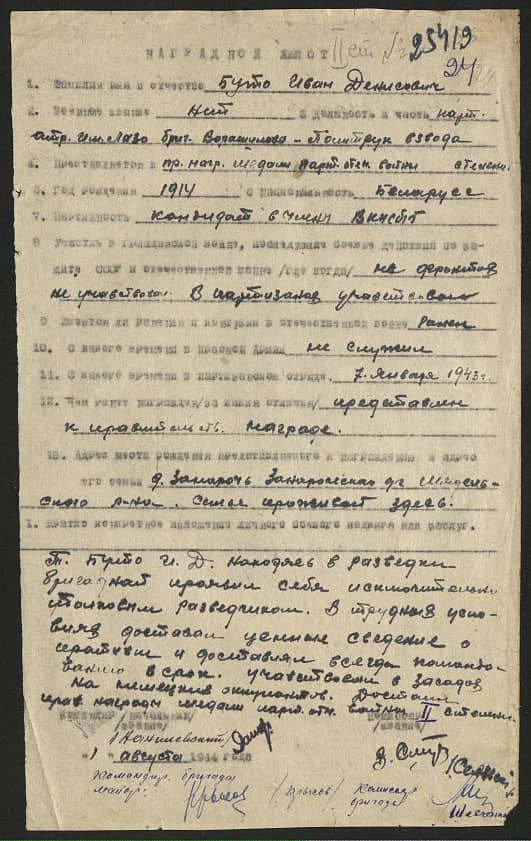 НАГРАДНОЙ ЛИСТ II ст. № 25419
24
1. Фамилия имя и отчество Буто Иван Денисович
2. Военное звание нет 3 Должность и часть парт.
отр. им. Лазо бриг. Ворошилова – Политрук взвода
4. Представляется к пр. нагр. медали Парт. отеч. войны степени.
5. Год рождения 1914 6 Национальность Беларусс
7. Партийность кандидат в члены ВКП(б)
8 Участие в гражданской войне, последующие боевые действия по за-
щите СССР и отечественной войне /где когда/ на фронтов
не учавствовал. В партизанах участвовал
9 Имеется ли ранения и контузии в отечественной войне Ранен
10. С какого времени в Красной Армии не служил
11. С какого времени в партизанском отряде. 7. Января 1943 г.
12. Чем ранее награжден/за какие отличия/ представлен
к правительств. награде.
13. Адрес места рождения представляемого к награждению и адрес
его семьи д. Занарочь Занарочского с/с Мядель-
ского р-на. Семья проживает здесь.
1. Кратко конкретное изложение личного боевого подвига или заслуг.
Т. Буто И. Д. находясь в разведки
бригадной проявил себя исключительно
толковым разведчиком. В трудных усло-
виях доставал ценные сведение о
противн и доставлял всегда командо-
ванию в срок. учавствовал в засадах
на немецких оккупантов. Достоин
прав. награды медали парт. отч. войны II степени.
Командир /начальник/
/звание/
Комиссар
/звание/
"1" августа 1944 года
Командир бригады
майор:
/Крысов/
Комиссар
бригады